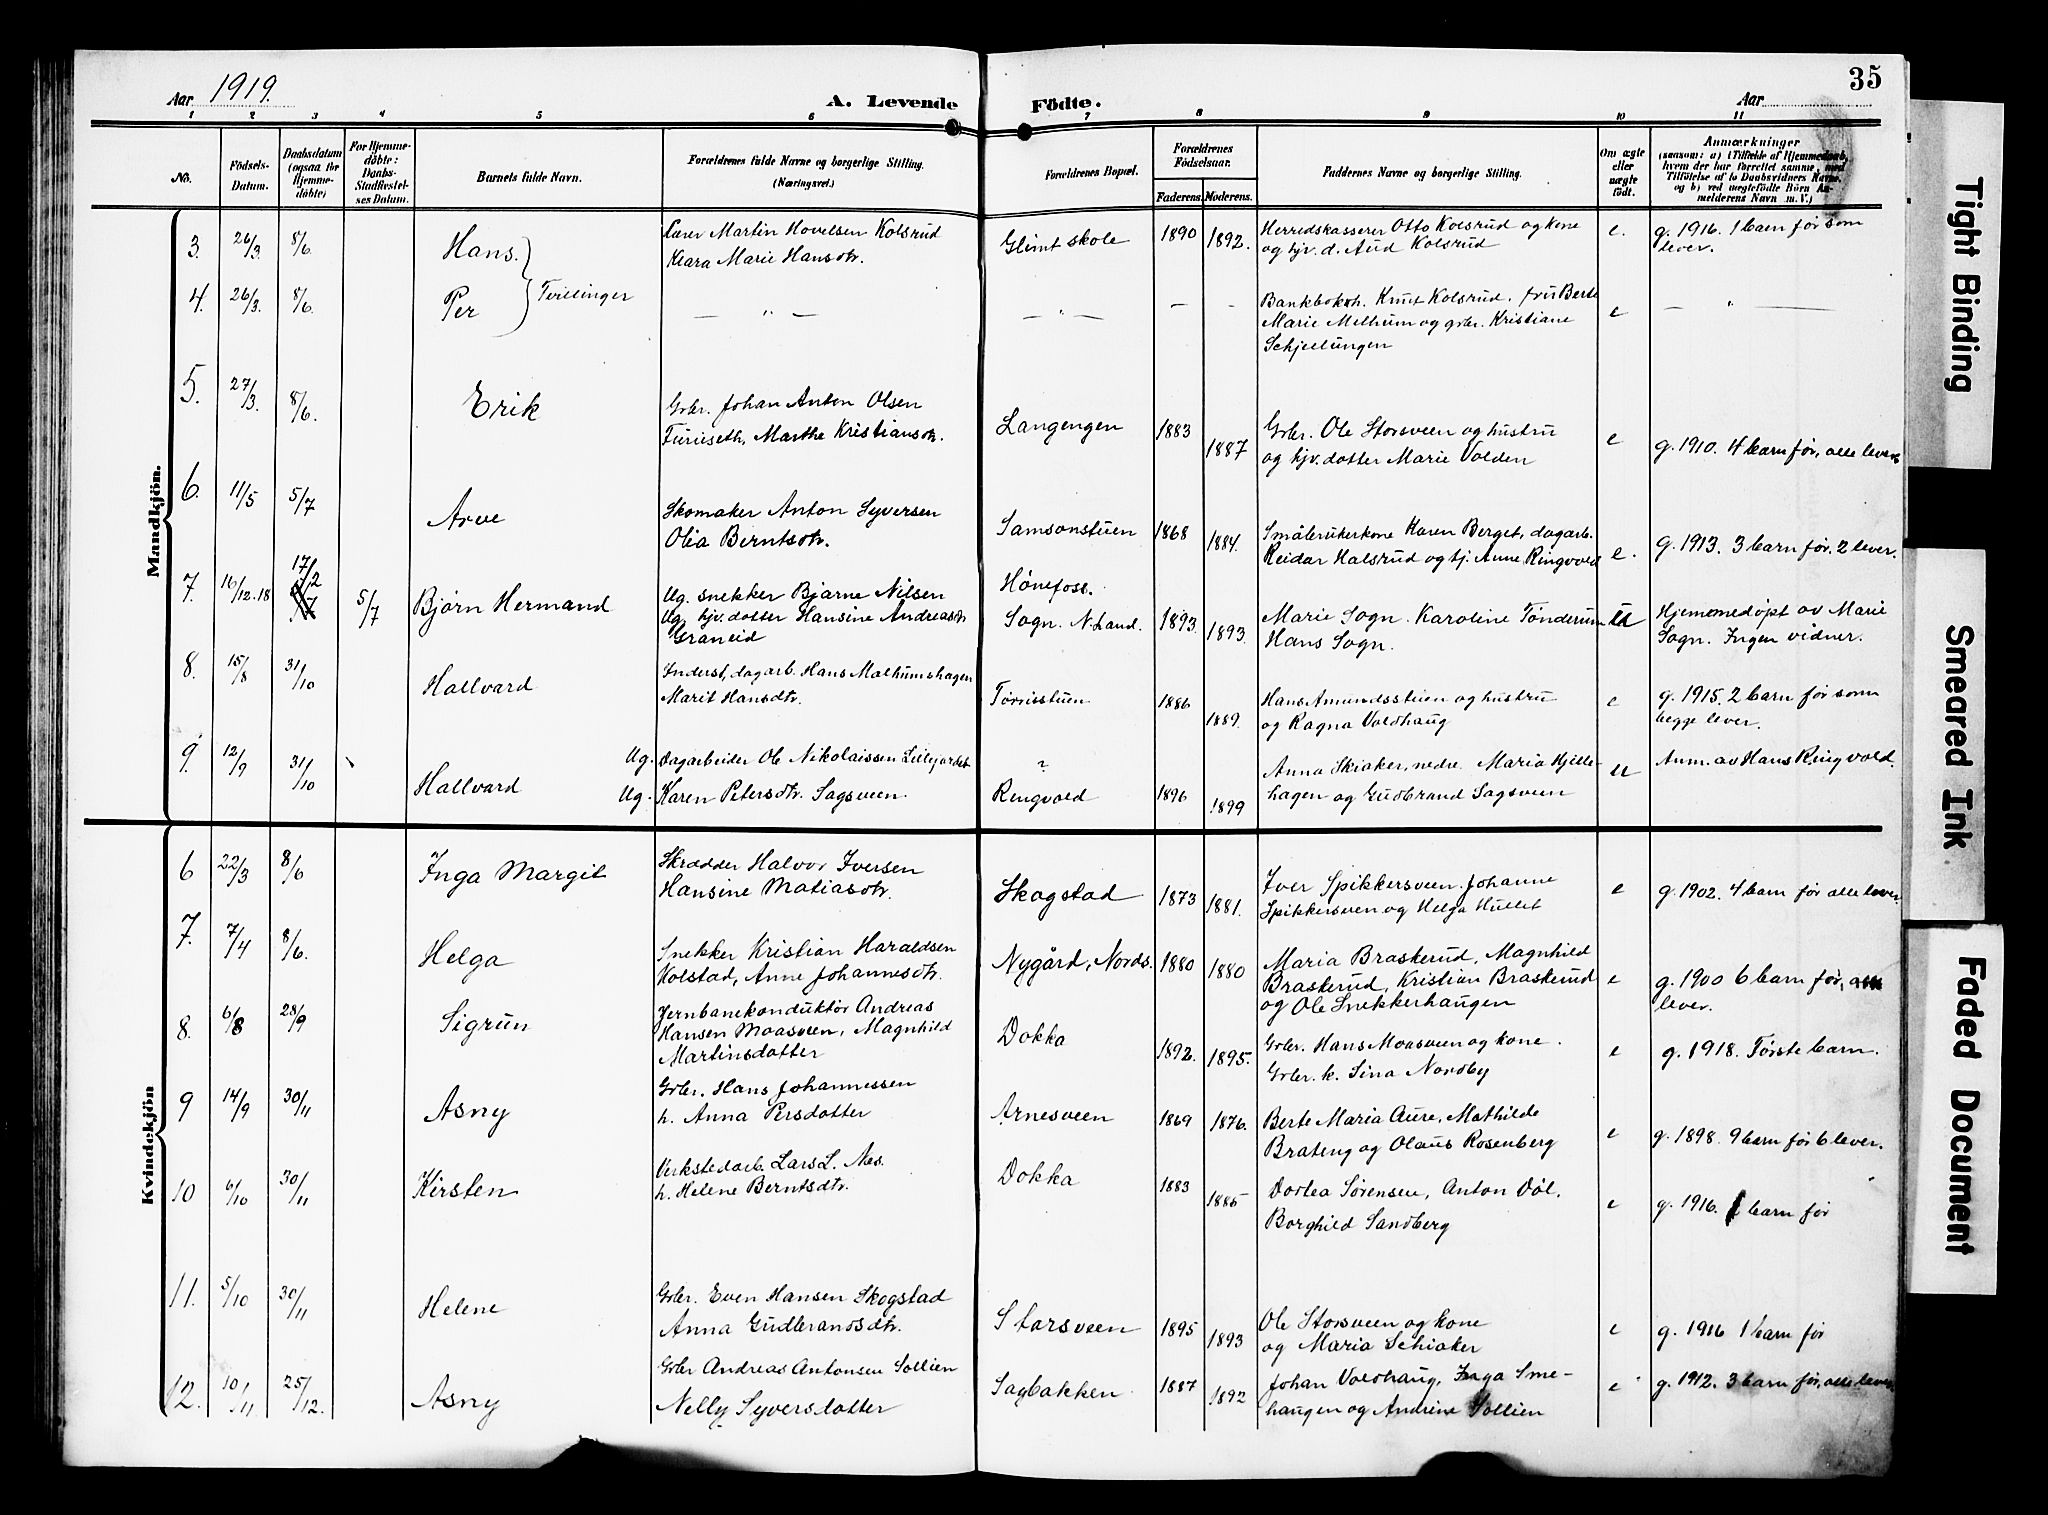 35
Aar 1919.
A. Levende Födte.
Aar
1 2 3 4 5 6 7 8 9 10 11
No.
Födsels-
Datum.
Daabsdatum
(ogsaa for
Hjemme-
döbte)
For Hjemme-
döbte:
Daabs-
Stadfæstel-
ses Datum.
Barnets fulde Navn.
Forældrenes fulde Navne og borgerlige Stilling.
(Næringsvei.)
Forældrenes Bopæl.
Forældrenes
Födselsaar.
Faderens. Moderens.
Faddernes Navne og borgerlige Stilling.
Om ægte
eller
uægte
födt.
Anmærkninger
(saasom: a) i Tilfælde af Hjemmedaab,
hvem der har forrettet samme, med
Tilföielse af to Daabsvidners Navne,
og b) ved uægtefödte Börn An-
melderens Navn m. V.)
Mandkjön.
3. 26/3. 8/6. Hans. } Tvillinger
Lærer Martin Hovelsen Kolsrud
Klara Marie Hansdtr.
Glimt skole 1890 1892.
Herredskasserer Otto Kolsrud og kone
og hjv. d. Aud Kolsrud
e. g. 1916. 1 barn før som
lever.
4. 26/3. 8/6. Per
— " — — " — — -
Bankbokh. Knut Kolsrud. fru Berte
Marie Melhum og grbr. Kristiane
Schjellungen
e — " —
5. 27/3. 8/6. Erik
Grbr. Johan Anton Olsen
Furuseth, Marthe Kristiansdtr.
Langengen 1883 1887
Grbr. Ole Storsveen og hustru
og hjv. datter Marie Volden
e g. 1910. 4 barn før, alle lever
6. 11/5 5/7 Arve
Skomaker Anton Syversen
Olia Berntsdtr.
Samsonstuen 1868 1884.
Småbrukerkone Karen Berget, dagarb.
Reidar Halsrud og tj. Anne Ringvold
e. g. 1913. 3 barn før. 2 lever.
7. 16/12.18 17/2 5/7 Bjørn Hermand
Ug. snekker Bjarne Nilsen
Ug. hjv. datter Hansine Andreasdtr
Graneid
Hønefoss.
Sogn. N. Land. 1893. 1893.
Marie Sogn. Karoline Tønderum
Hans Sogn.
U
Hjemmedøpt av Marie
Sogn. Ingen vidner.
8. 15/8 31/10 Hallvard
Inderst, dagarb. Hans Malhumshagen
Marit Hansdtr.
Tørrisstuen 1886 1889.
Hans Amundsstuen og hustru
og Ragna Voldhaug
e g. 1915. 2 barn før som
begge lever.
9. 12/9 31/10 Hallvard
Ug. Dagarbeider Ole Nikolaissen Lillejordet
Ug. Karen Petersdtr. Sagsveen.
?
Ringvold 1896 1899
Anna Skiaker, nedre. Maria Hjelle-
hagen og Gudbrand Sagsveen
u Anm. av Hans Ringvold.
Kvindekjön
6 22/3 8/6 Inga Margit
Skrædder Halvor Iversen
Hansine Matiasdtr.
Skogstad 1873 1881.
Iver Spikkersveen. Johanne
Spikkersveen og Helga Hullet
e g. 1902. 4 barn før alle lever
7. 7/4 8/6. Helga
Snekker Kristian Haraldsen
Kolstad, Anne Johannesdtr.
Nygård, Nords. 1880 1880
Maria Braskerud, Magnhild
Braskerud, Kristian Braskerud
og Ole Snekkerhaugen
e g. 1900 6 barn før, alle
lever.
8. 6/8 28/9 Sigrun
Jernbanekonduktør Andreas
Hansen Moasveen, Magnhild
Martinsdatter
Dokka 1892. 1895.
Grbr. Hans Moasveen og kone.
Grbr. k. Sina Nordby
e g. 1918. Første barn.
9 14/9 30/11 Asny
Grbr. Hans Johannessen
h. Anna Persdatter
Arnesveen 1869 1876.
Berte Maria Aure, Mathilde
Brateng og Olaus Rosenberg
e g. 1898. 9 barn før 6 lever.
10 6/10 30/11 Kirsten
Verkstedarb. Lars L. Nes.
h. Helene Berntsdtr.
Dokka 1883 1885
Dortea Sørensen, Anton Døl.
Borghild Sandberg
e g. 1916. 1 barn før
11. 5/10 30/11 Helene
Grbr. Even Hansen Skogstad
Anna Gudbrandsdtr.
Storsveen 1895 1893
Ole Storsveen og kone
og Maria Schiaker
e g. 1916 1 barn før
12. 10/11 25/12. Asny
Grbr Andreas Antonsen Sollien
Nelly Syversdatter
Sagbakken 1887 1892
Johan Voldhaug, Inga Sme-
haugen og Andrine Sollien
e g. 1912. 3 barn før, alle lever
Tight Binding
Smeared Ink
Faded Document